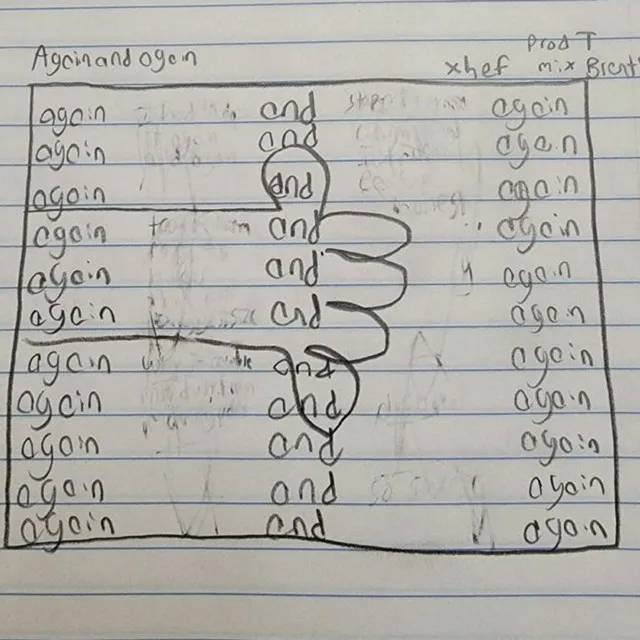 Again and again
xhef
Prod T
mix Brent
again and again
again and again
again and again
again and again
again and again
again and again
again and again
again and again
again and again
again and again
again and again